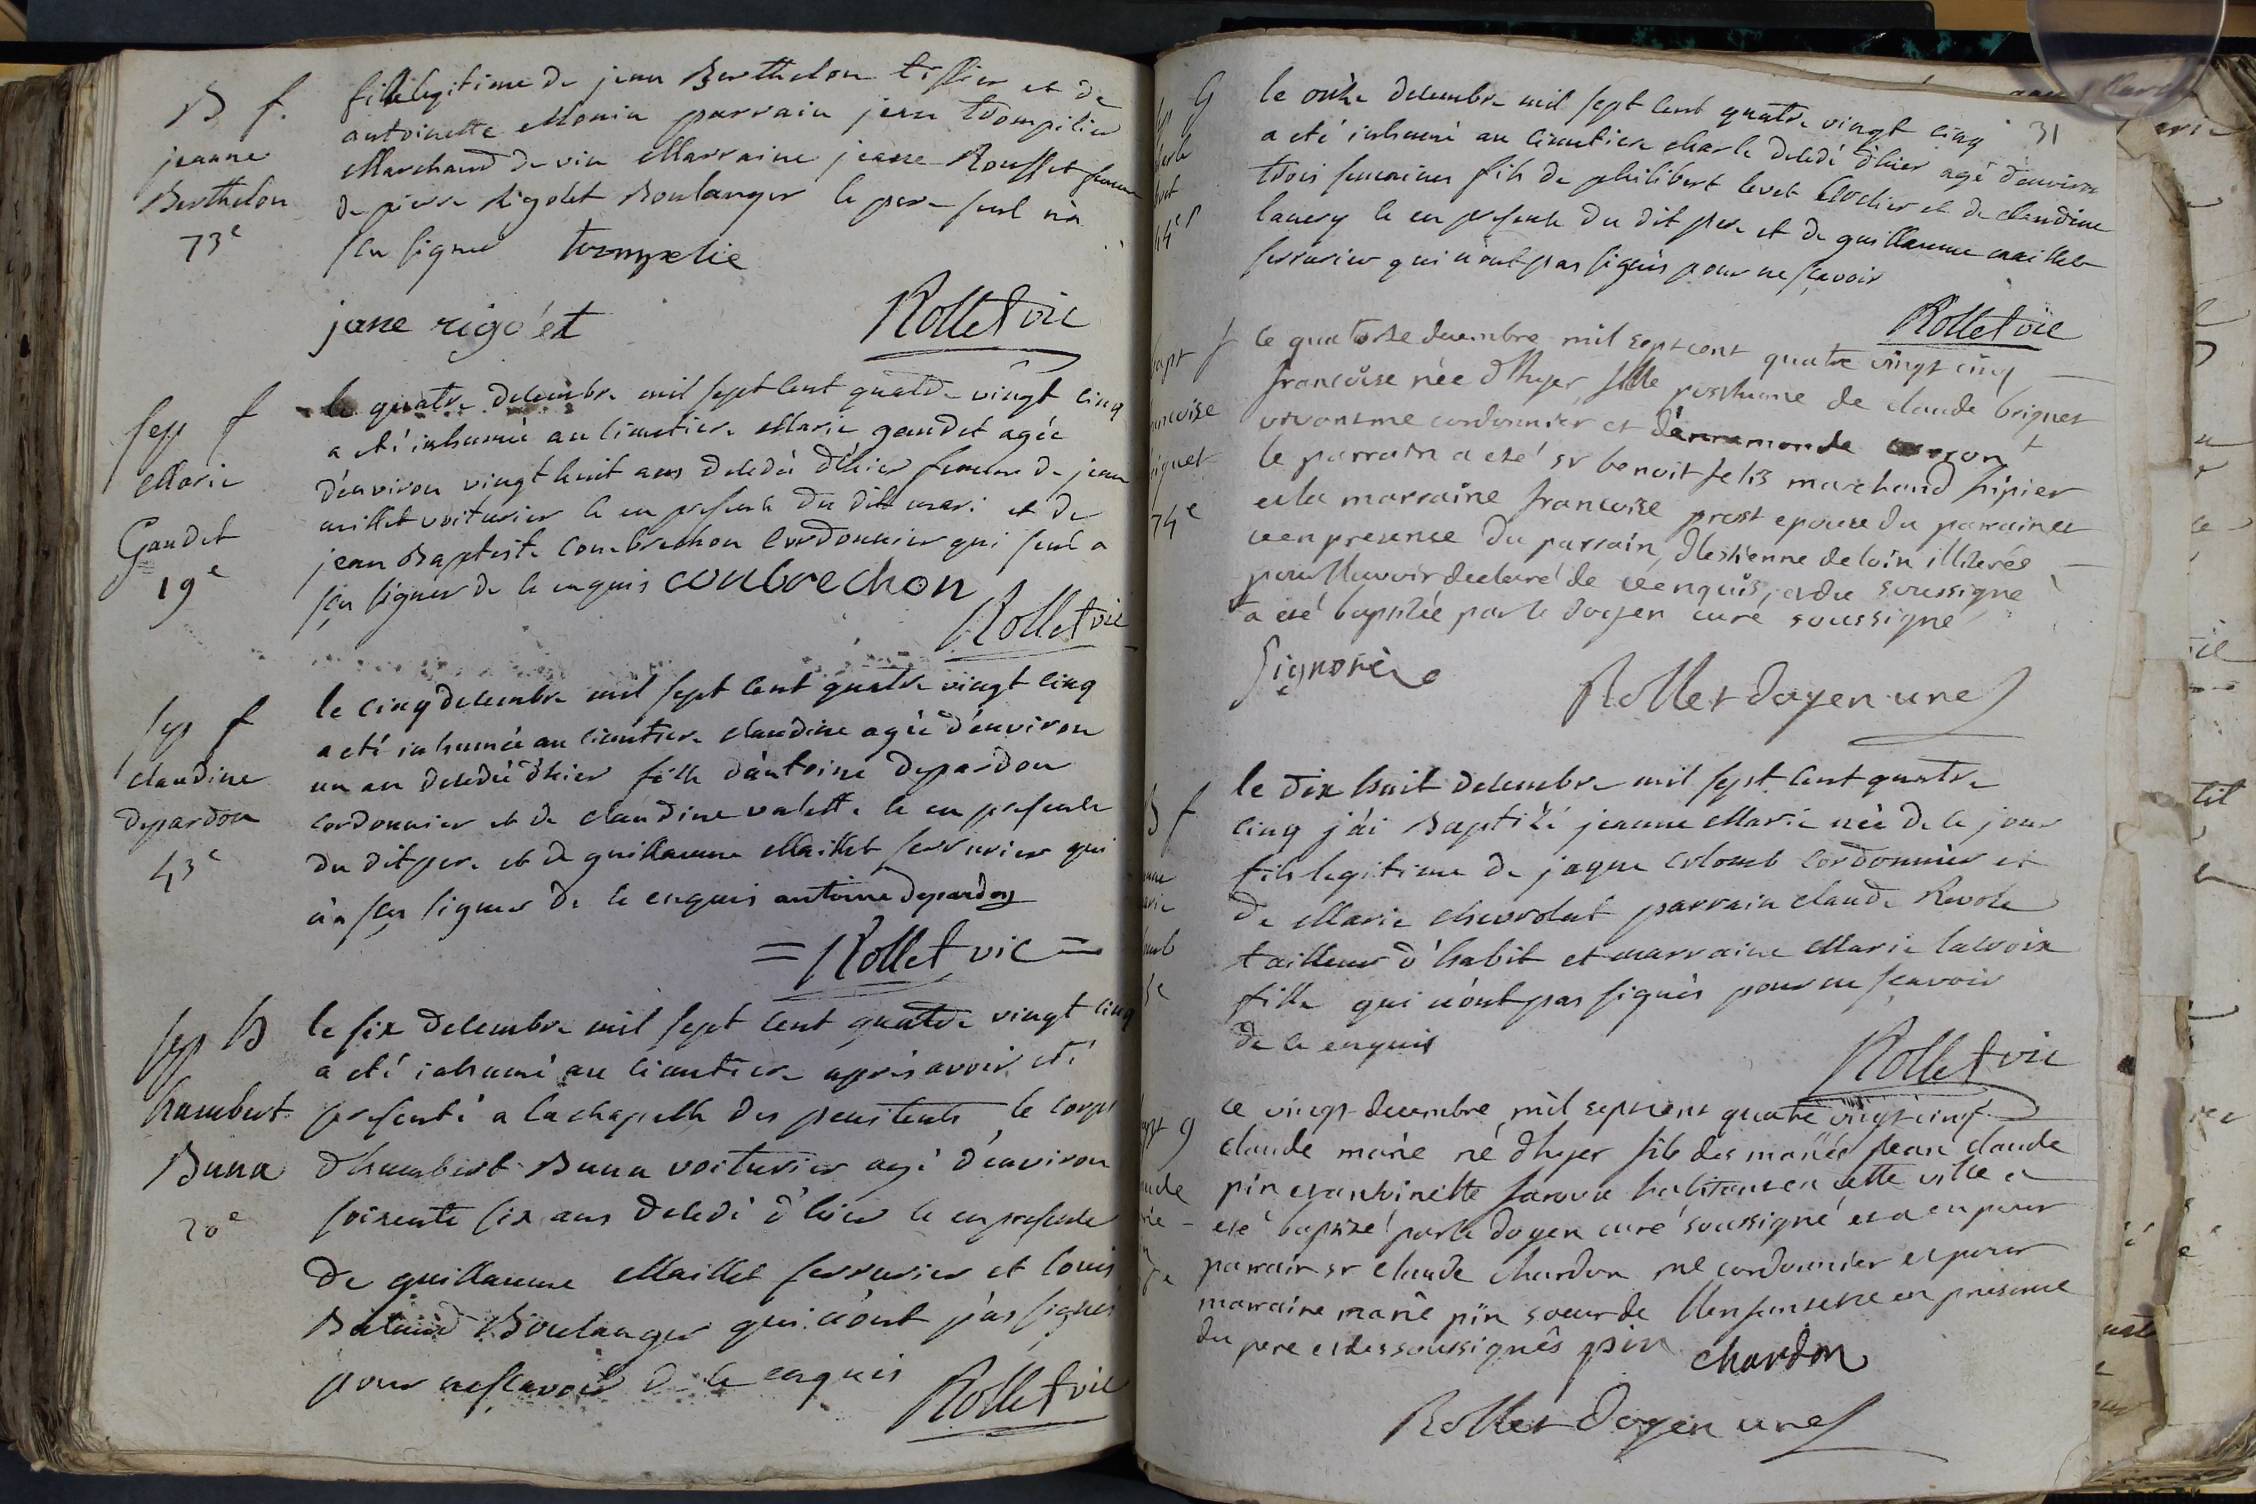 B f.
jeanne
Berthelon
73e
fille legitime de jean Berthelon tissier et de
antoinette Monin parrain jean trompilie
Marchand de vin Marraine jeanne Rousset femme
de pierre Rigolet Boulanger le pere seul n'a
sçu signer trompelie
jane rigolet Rollet vic
sep f
Marie
Gaudet
19e
le quatre decembre mil sept cent quatre vingt cinq
a eté inhumée au cimetiere Marie gaudet agée
d'environ vingt huit ans decedée d'hier femme de jean
millet voiturier ce en presence du dit mari et de
jean Baptiste Coubrechon Cordonnier qui seul a
sçu signer de ce enquis coubrechon
Rollet vic
sep f
claudine
depardon
43e
le cinq decembre mil sept cent quatre vingt cinq
a eté inhumée au cimetiere claudine agée d'environ
un an decedée d'hier fille d'antoine depardon
cordonnier et de claudine valette ce en presence
du dit pere et de guillaume Maillet serrurier qui
n'a sçu signer de ce enquis antoine depardon
= Rollet vic =
sep h
humbert
Buna
20e
le six decembre mil sept cent quatre vingt cinq
a eté inhumé au cimetiere après avoir eté
presenté a la chapelle des penitents le corps
d'humbert Buna voiturier agé d'environ
soixente six ans decedé d'hier ce en presence
de guillaume Maillet serrurier et louis
Boulanger qui n'ont pas signés
pour ne sçavoir de ce enquis Rollet vic
31
G
44e
le onze decembre mil sept cent quatre vingt cinq
a eté inhumé au cimetiere charle decedé d'hier agé d'environ
trois semaines fils de philibert levet et de claudine
lancry ce en presence du dit pere et de guillaume maillet
serrurier qui n'ont pas signés pour ne sçavoir
Rollet vic
bapt f
ancoise
iquet
74e
ce quatorze decembre mil sept cent quatre vingt cinq
francoise née d'hyer fille posthume de claude briquet
vivant me cordonnier et d'annemonde
le parrain a eté sr benoit felis marchand fripier
et la marraine francoise prost epouse du parrain et
ce en presence du parrain, d'estienne deloin illiterés
pour l'avoir declaré de ce enquis, et du soussigné
a eté baptisée par le doyen curé soussigné
Signoret
Rollet doyen curé
B f
le dix huit decembre mil sept cent quatre
cinq j'ai Baptizé jeanne Marie née de ce jour
fille legitime de jaque colomb Cordonnier et
de Marie chevrolat parrain claude Revole
tailleur d'habit et marraine Marie lacroix
fille qui n'ont pas signés pour ne sçavoir
de ce enquis
Rollet vic
bapt g
ce vingt decembre mil sept cent quatre vingt cinq
claude marie né d'hyer fils des mariés jean claude
pin et antoinette habitants en cette ville a
eté baptizé par le doyen curé soussigné et a eu pour
parrain sr claude chardon me cordonnier et pour
marraine marie pin soeur de l'enfant ce en presence
du pere et des soussignés pin chardon
Rollet doyen curé